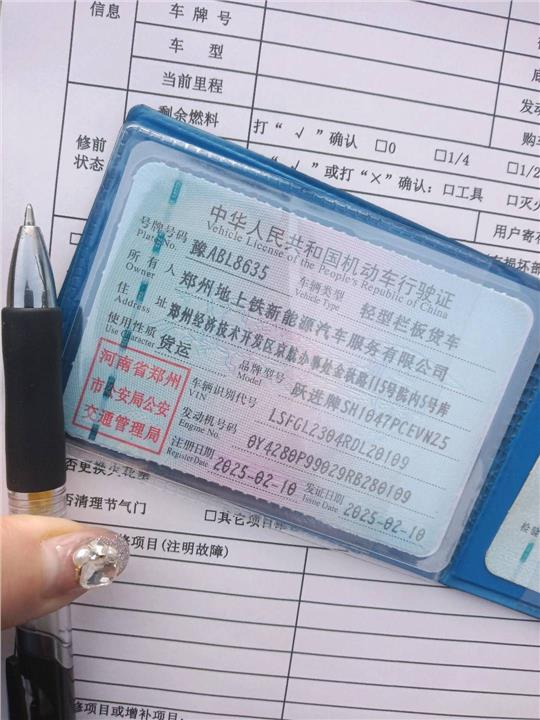 信息
车 牌 号
车 型
当前里程
剩余燃料
打“ √ ”确认 □0 □1/4 □1/2
修前
状态
”或打“×”确认：□工具 □灭火
用户寄存
中华人民共和国机动车行驶证
Vehicle License of the People's Republic of China
号牌号码 豫ABL8635 车辆类型 轻型栏板货车
Plate No. Vehicle Type
所 有 人 郑州地上铁新能源汽车服务有限公司
Owner
住 址 郑州经济技术开发区京航办事处金秋路115号院内5号库
Address
使用性质 货运 品牌型号 跃进牌SH1047PCEVNZ5
Use Character Model
河南省郑州
市公安局公安
交通管理局
车辆识别代号 LSFGL2304RDL20109
VIN
发动机号码 0Y4280P99029RB280109
Engine No.
注册日期 2025-02-10 发证日期 2025-02-10
Register Date Issue Date
否清理节气门 □其它项目
修项目(注明故障)
修项目或增补项目